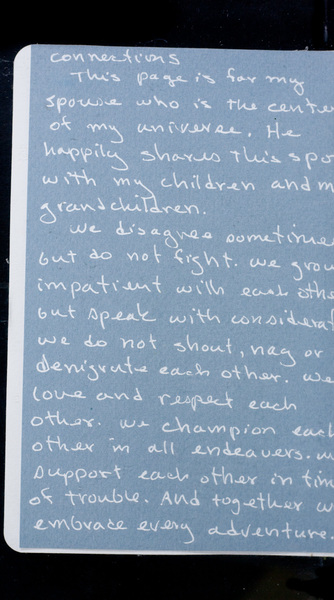 connections
This page is for my
spouse who is the cente
of my universe. He
happily shares this spo
with my children and m
grandchildren.
We disagree sometime
but do not fight. We grow
impatient with each othe
but speak with considerat
We do not shout, nag or
denigrate each other. We
love and respect each
other. We champion each
other in all endeavers. W
support each other in tim
of trouble. And together w
embrace every adventure.